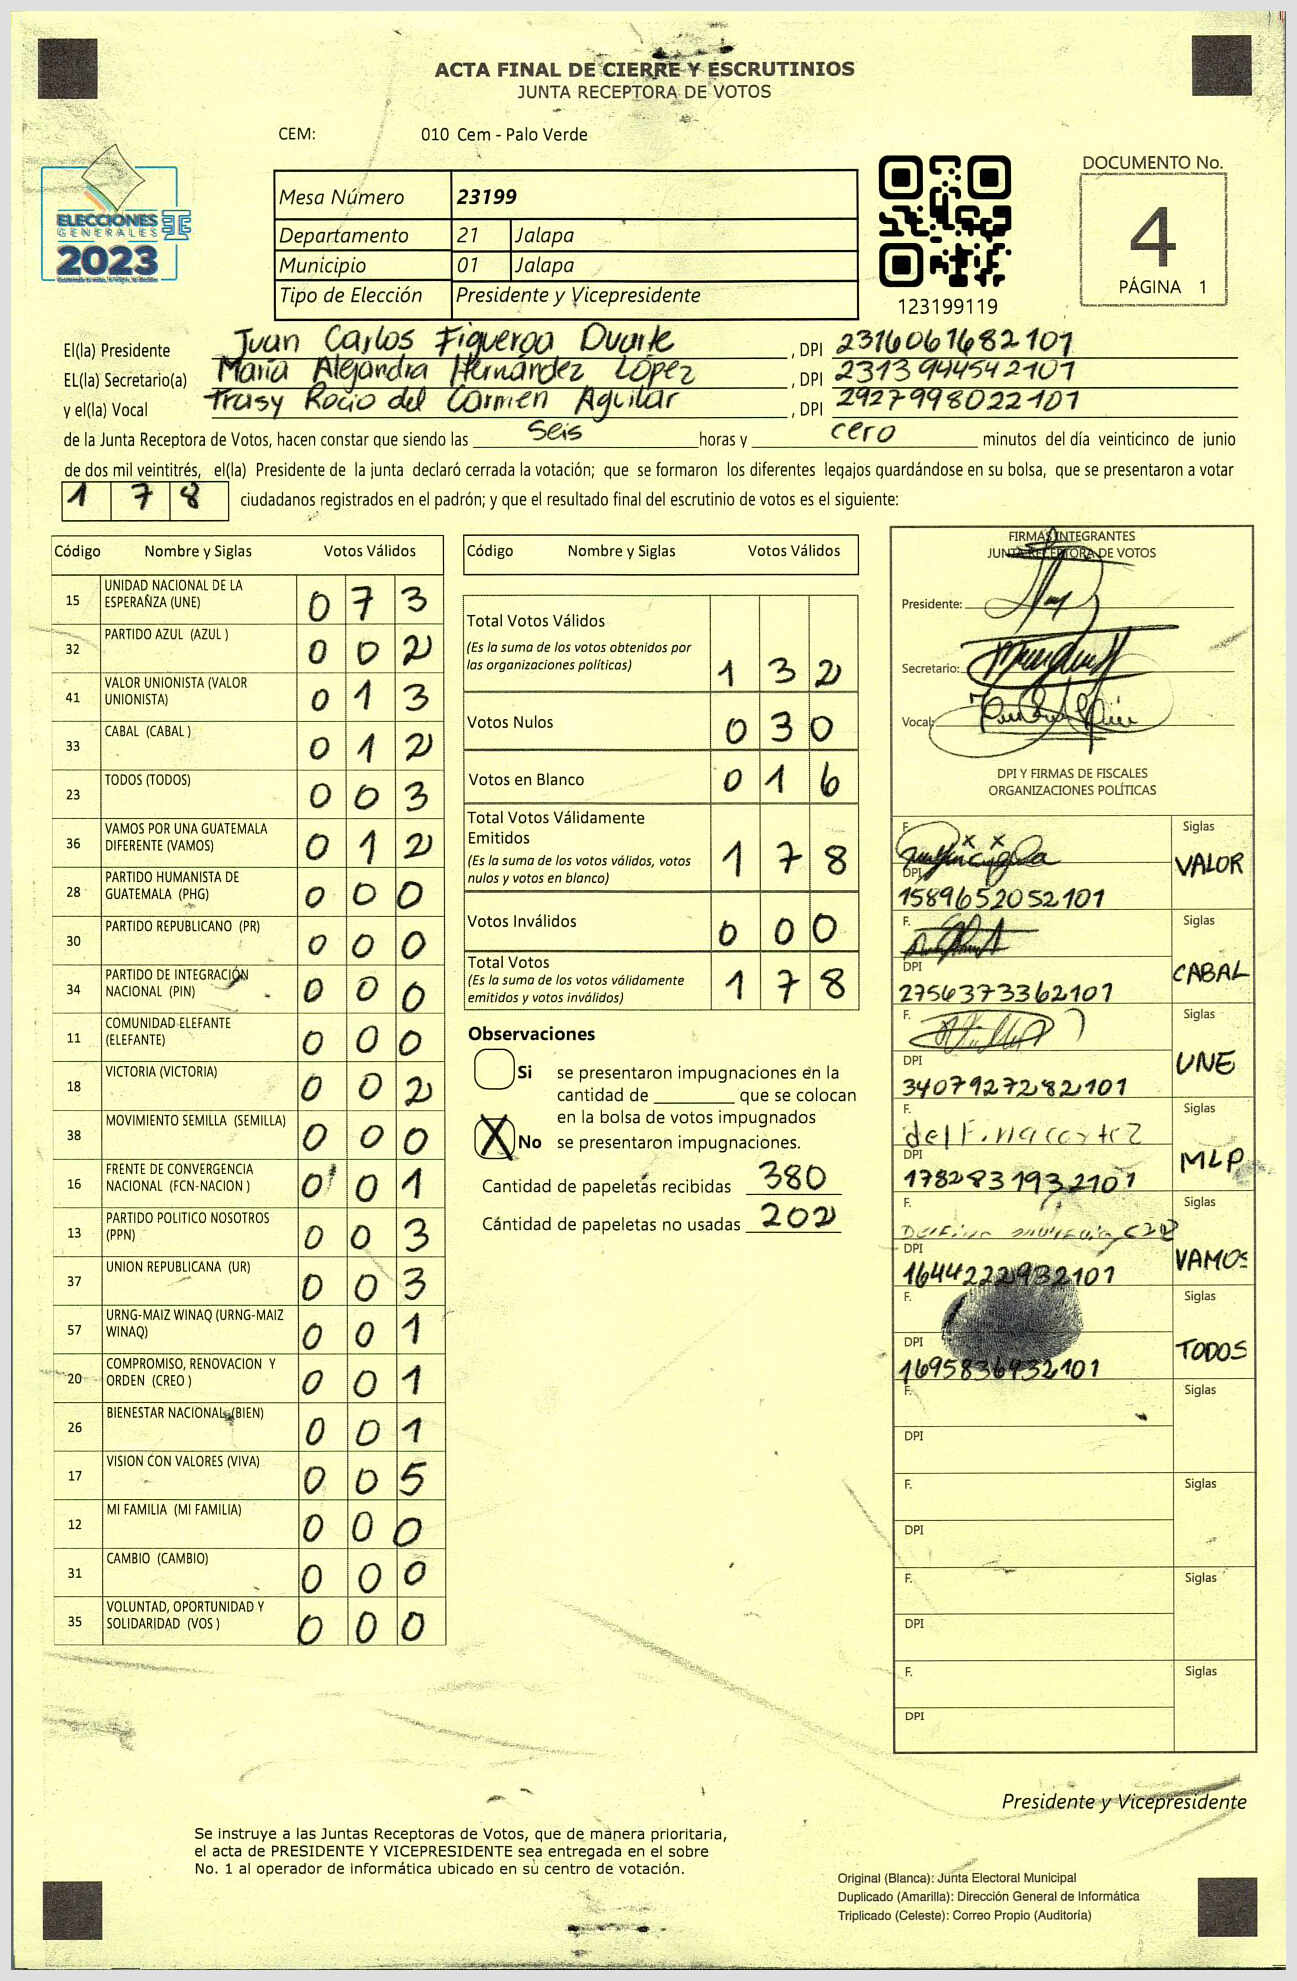 ACTA FINAL DE CIERRE Y ESCRUTINIOS
JUNTA RECEPTORA DE VOTOS
CEM: 010 Cem - Palo Verde
ELECCIONES
GENERALES
2023
Mesa Número 23199
Departamento 21 Jalapa
Municipio 01 Jalapa
Tipo de Elección Presidente y Vicepresidente
123199119
DOCUMENTO No.
4
PÁGINA 1
El(la) Presidente Juan Carlos Figueroa Duarte, DPI 2316061682101
EL(la) Secretario(a) María Alejandra Hernández López, DPI 2313944542101
y el(la) Vocal Trasy Rocio del Carmen Aguilar, DPI 2927998022101
de la Junta Receptora de Votos, hacen constar que siendo las seis horas y cero minutos del día veinticinco de junio
de dos mil veintitrés, el(la) Presidente de la junta declaró cerrada la votación; que se formaron los diferentes legajos guardándose en su bolsa, que se presentaron a votar
1 7 8 ciudadanos registrados en el padrón; y que el resultado final del escrutinio de votos es el siguiente:
Código Nombre y Siglas Votos Válidos
15 UNIDAD NACIONAL DE LA ESPERANZA (UNE) 0 7 3
32 PARTIDO AZUL (AZUL ) 0 0 2
41 VALOR UNIONISTA (VALOR UNIONISTA) 0 1 3
33 CABAL (CABAL ) 0 1 2
23 TODOS (TODOS) 0 0 3
36 VAMOS POR UNA GUATEMALA DIFERENTE (VAMOS) 0 1 2
28 PARTIDO HUMANISTA DE GUATEMALA (PHG) 0 0 0
30 PARTIDO REPUBLICANO (PR) 0 0 0
34 PARTIDO DE INTEGRACIÓN NACIONAL (PIN) 0 0 0
11 COMUNIDAD ELEFANTE (ELEFANTE) 0 0 0
18 VICTORIA (VICTORIA) 0 0 2
38 MOVIMIENTO SEMILLA (SEMILLA) 0 0 0
16 FRENTE DE CONVERGENCIA NACIONAL (FCN-NACION ) 0 0 1
13 PARTIDO POLITICO NOSOTROS (PPN) 0 0 3
37 UNION REPUBLICANA (UR) 0 0 3
57 URNG-MAIZ WINAQ (URNG-MAIZ WINAQ) 0 0 1
20 COMPROMISO, RENOVACION Y ORDEN (CREO ) 0 0 1
26 BIENESTAR NACIONAL (BIEN) 0 0 1
17 VISION CON VALORES (VIVA) 0 0 5
12 MI FAMILIA (MI FAMILIA) 0 0 0
31 CAMBIO (CAMBIO) 0 0 0
35 VOLUNTAD, OPORTUNIDAD Y SOLIDARIDAD (VOS ) 0 0 0
Código Nombre y Siglas Votos Válidos
Total Votos Válidos 1 3 2
(Es la suma de los votos obtenidos por
las organizaciones políticas)
Votos Nulos 0 3 0
Votos en Blanco 0 1 6
Total Votos Válidamente
Emitidos 1 7 8
(Es la suma de los votos válidos, votos
nulos y votos en blanco)
Votos Inválidos 0 0 0
Total Votos 1 7 8
(Es la suma de los votos válidamente
emitidos y votos inválidos)
Observaciones
Si se presentaron impugnaciones en la
cantidad de ________ que se colocan
en la bolsa de votos impugnados
X No se presentaron impugnaciones.
Cantidad de papeletas recibidas 380
Cántidad de papeletas no usadas 202
FIRMAS INTEGRANTES
JUNTA RECEPTORA DE VOTOS
Presidente:
Secretario:
Vocal:
DPI Y FIRMAS DE FISCALES
ORGANIZACIONES POLÍTICAS
F. Siglas
DPI 1589652052101 VALOR
F. Siglas
DPI 2756373362101 CABAL
F. Siglas
DPI 3407927282101 UNE
F. delfina cortez Siglas
DPI 1782831932101 MLP
F. Siglas
DPI 1644222932101 VAMOS
F. Siglas
DPI 1695836932101 TODOS
F. Siglas
DPI
F. Siglas
DPI
F. Siglas
DPI
F. Siglas
DPI
Presidente y Vicepresidente
Se instruye a las Juntas Receptoras de Votos, que de manera prioritaria,
el acta de PRESIDENTE Y VICEPRESIDENTE sea entregada en el sobre
No. 1 al operador de informática ubicado en su centro de votación.
Original (Blanca): Junta Electoral Municipal
Duplicado (Amarilla): Dirección General de Informática
Triplicado (Celeste): Correo Propio (Auditoría)